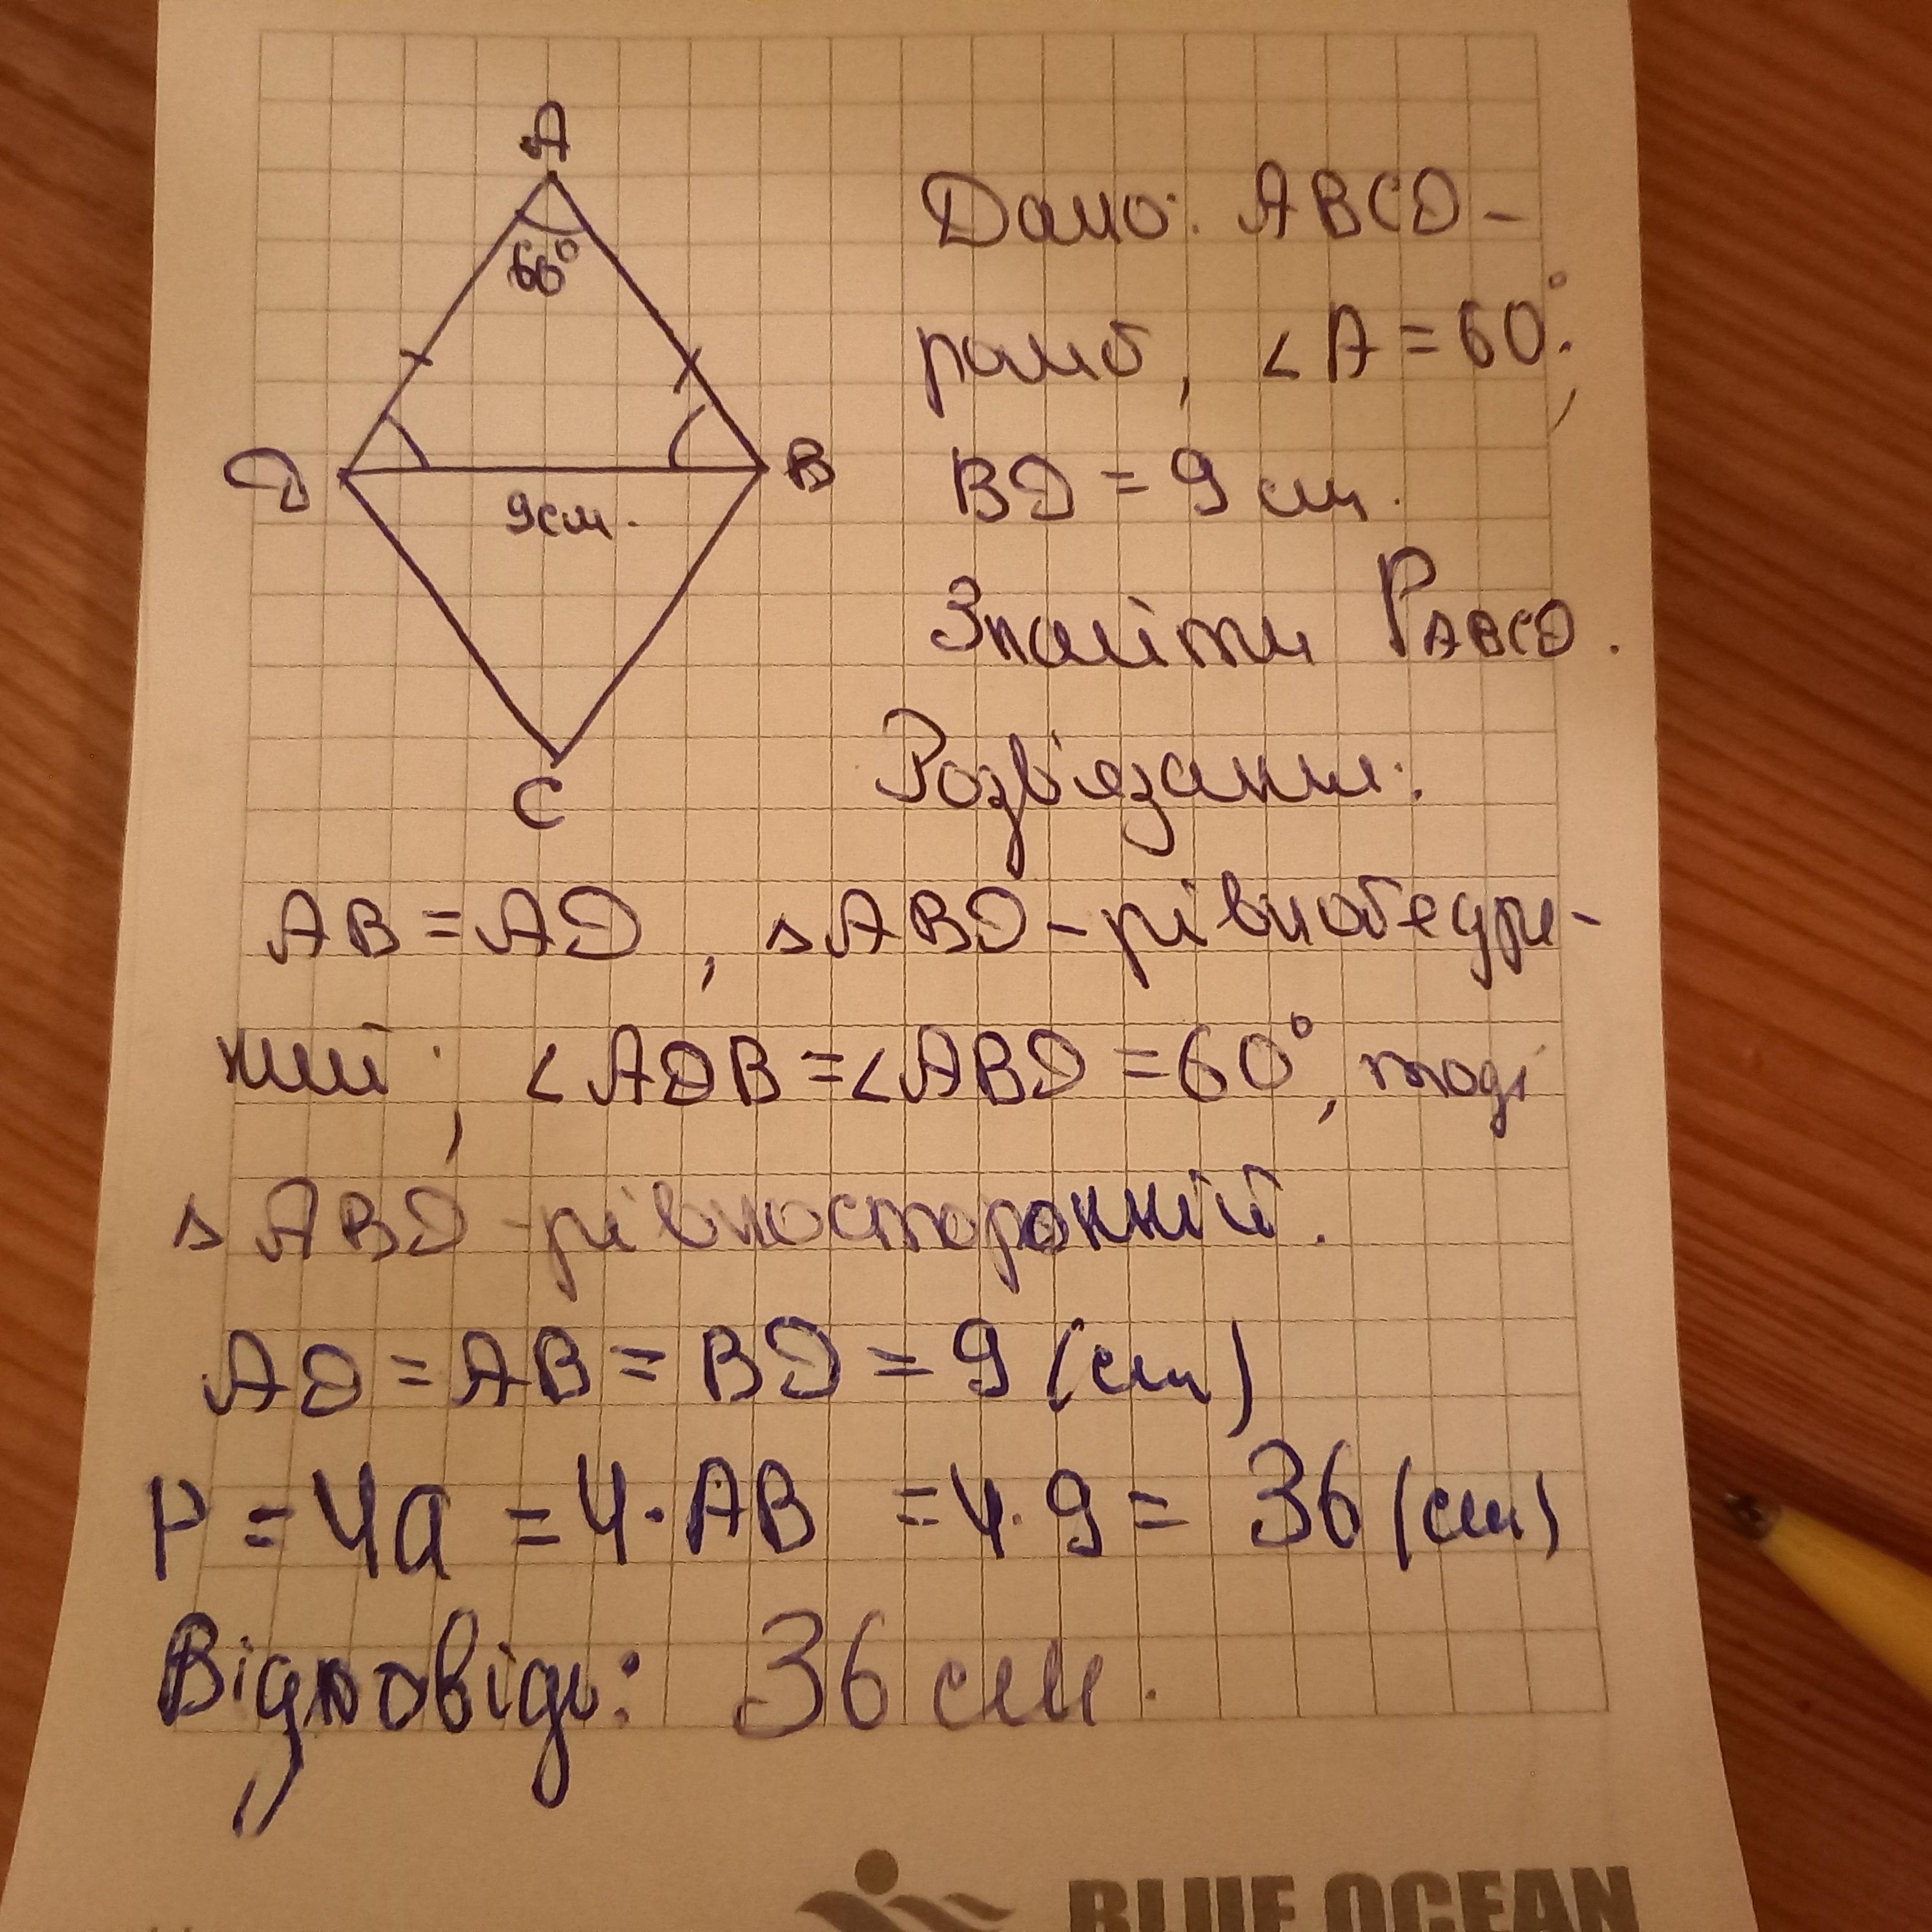 A
60°
D
B
9см.
C
Дано: ABCD -
ромб, ∠A = 60°;
BD = 9 см.
Знайти P ABCD.
Розв'язання:
AB = AD, △ABD - рівнобедре-
ний; ∠ADB = ∠ABD = 60°, тоді
△ABD - рівносторонній.
AD = AB = BD = 9 (см)
P = 4a = 4·AB = 4·9 = 36 (см)
Відповідь: 36 см.
BLUE OCEAN